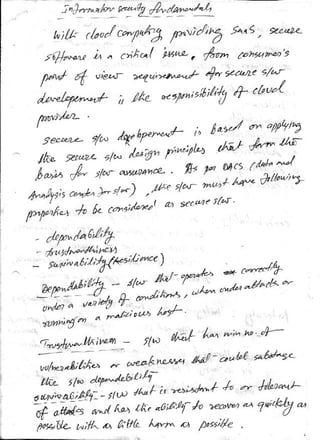 Information security fundamentals
With cloud computing providing SaaS, secure
software is a critical issue, from consumer's
point of view requirement for secure s/w
development is the responsibility of cloud
provider.
secure s/w development is based on applying
the secure s/w design principles that form the
basis for s/w assurance. As per DACS (data and
Analysis center for s/w), the s/w must have following
properties to be considered as secure s/w.
- dependability
- trustworthiness
- survivability (Resilience)
Dependability - s/w that operates correctly
under a variety of conditions, when under attack or
running on a malicious host.
Trustworthiness - s/w that has min no. of
vulnerabilities or weaknesses that could sabotage
the s/w dependability
survivability - s/w that is resistant to or tolerant
of attacks and has the ability to recover as quickly as
possible with as little harm as possible.